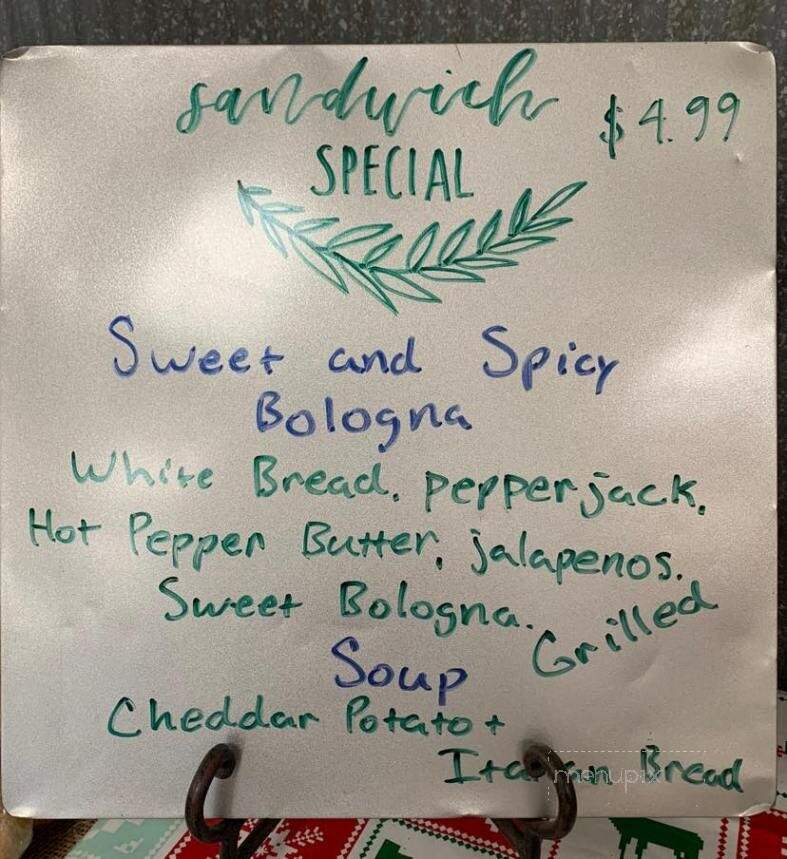 sandwich $4.99
SPECIAL
Sweet and Spicy
Bologna
White Bread, pepperjack,
Hot Pepper Butter, jalapenos,
Sweet Bologna. Grilled
Soup
Cheddar Potato +
Italian Bread
menupix